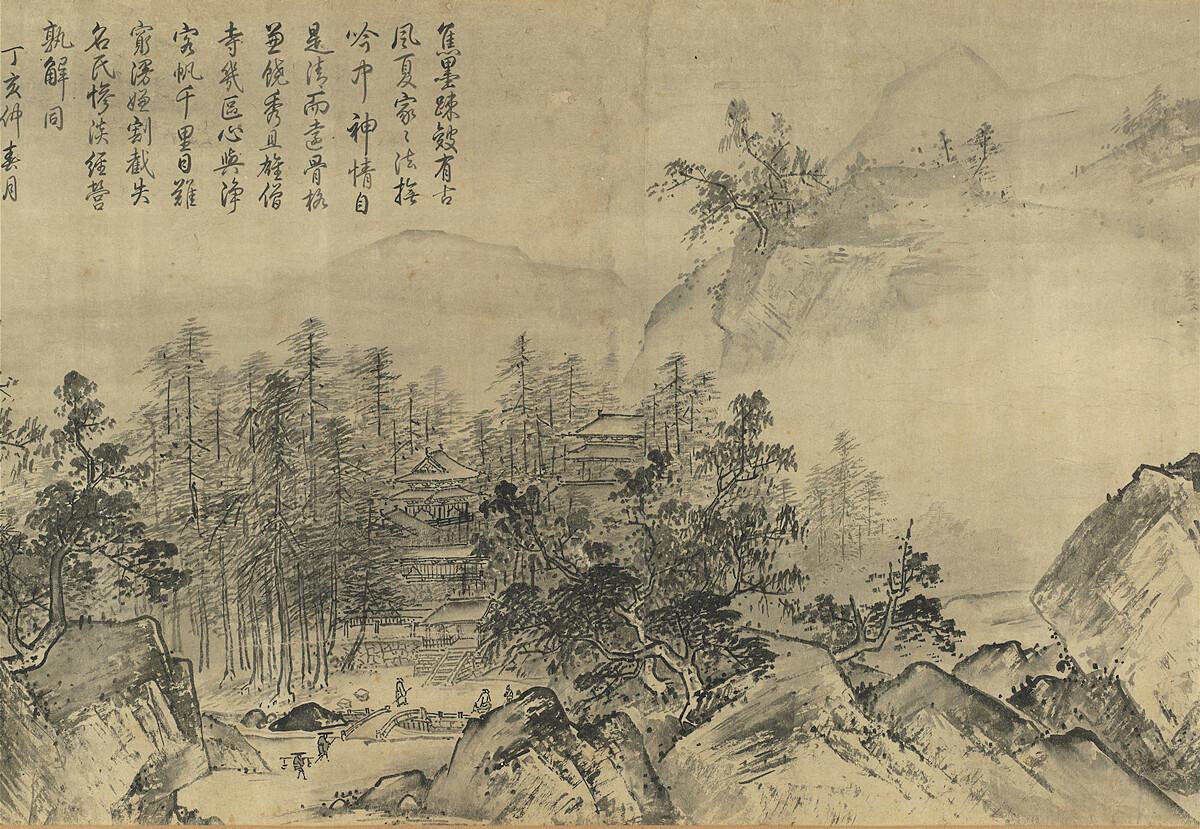 焦墨疎皴有古
風夏家々法撫
吟中神情自
是清而遠骨格
兼饒秀且雄僧
寺幾區心與淨
客帆千里目難
窮漫嫌割截失
名氏慘淡經營
孰解同
丁亥仲春月